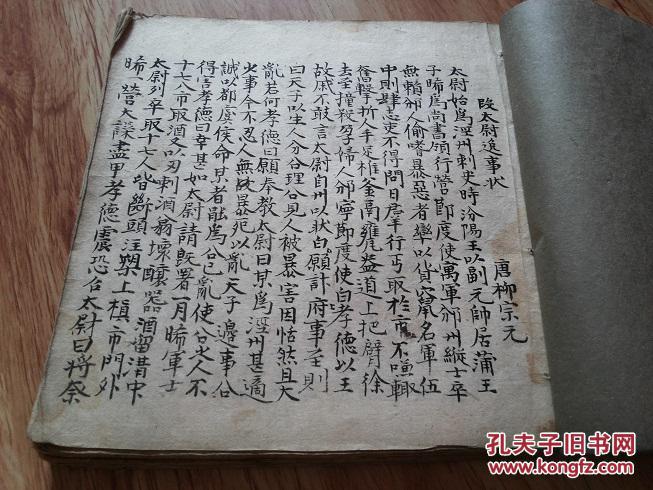 段太尉逸事状
唐柳宗元
太尉始為涇州刺史時汾陽王以副元帥居蒲王
子晞為尚書領行營節度使寓軍邠州縱士卒
無賴邠人偷嗜暴惡者率以貨竄名軍伍
中則肆志吏不得問日羣行丐取於市不嗛輒
奮擊折人手足椎釜鬲甕盎道上把臂徐
去至撞殺孕婦人邠寧節度使白孝德以王
故戚不敢言太尉自州以狀白願計府事至則
曰天子以生人分合理公見人被暴害因恬然且大
亂若何孝德曰願奉教太尉曰某為涇州甚適
少事今不忍人無故暴死以亂天子邊事公
誠以都虞侯命某者能為公已亂使公之人不
得害孝德曰幸甚如太尉請既署一月晞軍士
十七人市取酒又以刃刺酒翁壞釀器酒留溝中
太尉列卒取十七人皆斷頭注槊上植市門外
晞一營大譟盡甲孝德震恐召太尉曰將奈
孔夫子旧书网